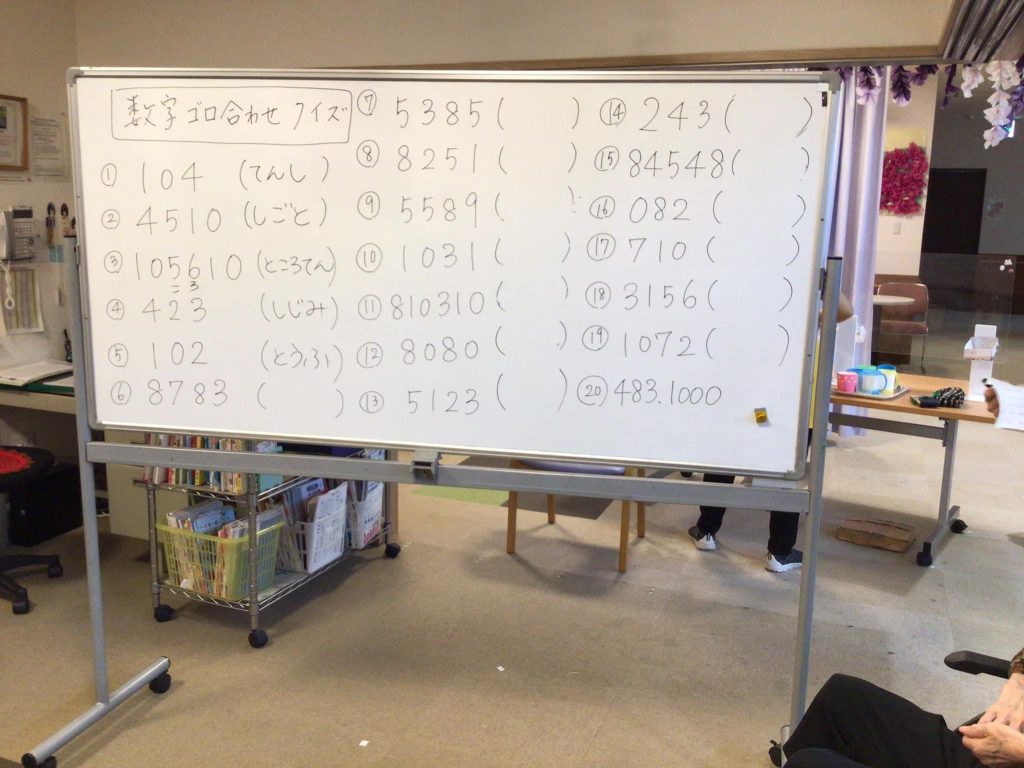 数字ゴロ合わせクイズ
① 104 (てんし)
② 4510 (しごと)
③ 105610 (ところてん)
こ ろ
④ 423 (しじみ)
⑤ 102 (とうふ)
⑥ 8783 ( )
⑦ 5385 ( )
⑧ 8251 ( )
⑨ 5589 ( )
⑩ 1031 ( )
⑪ 810310 ( )
⑫ 8080 ( )
⑬ 5123 ( )
⑭ 243 ( )
⑮ 84548 ( )
⑯ 082 ( )
⑰ 710 ( )
⑱ 3156 ( )
⑲ 1072 ( )
⑳ 483.1000